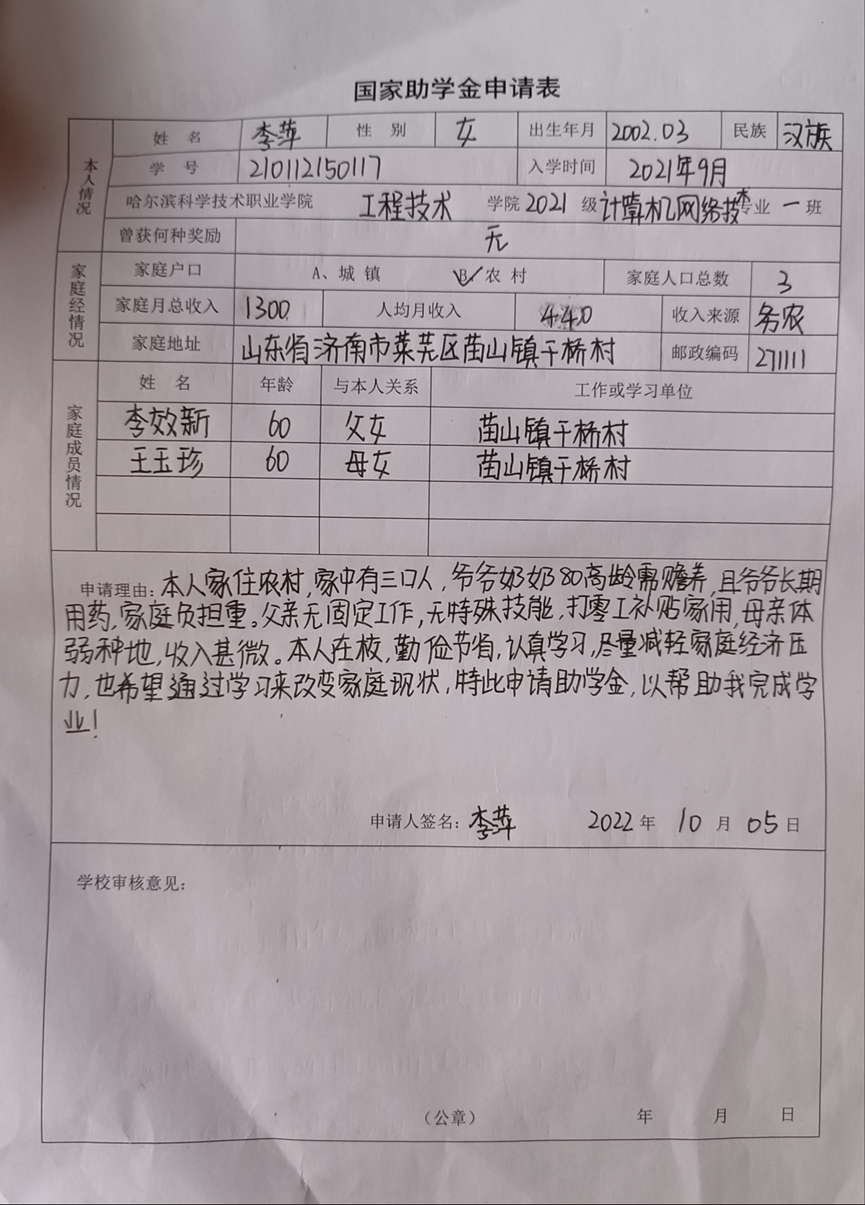 国家助学金申请表
本人情况
姓 名 李萍 性 别 女 出生年月 2002.03 民族 汉族
学 号 210112150117 入学时间 2021年9月
哈尔滨科学技术职业学院 工程技术 学院 2021 级 计算机网络技术 专业 一 班
曾获何种奖励 无
家庭经情况
家庭户口 A、城 镇 B、✓农 村 家庭人口总数 3
家庭月总收入 1300 人均月收入 440 收入来源 务农
家庭地址 山东省济南市莱芜区苗山镇干桥村 邮政编码 271111
家庭成员情况
姓 名 年龄 与本人关系 工作或学习单位
李效新 60 父女 苗山镇干桥村
王玉珍 60 母女 苗山镇干桥村
申请理由：本人家住农村，家中有三口人，爷爷奶奶80高龄需赡养，且爷爷长期
用药，家庭负担重。父亲无固定工作，无特殊技能，打零工补贴家用，母亲体
弱种地，收入甚微。本人在校，勤俭节省，认真学习，尽量减轻家庭经济压
力，也希望通过学习来改变家庭现状，特此申请助学金，以帮助我完成学
业！
申请人签名：李萍 2022 年 10 月 05 日
学校审核意见：
（公章） 年 月 日